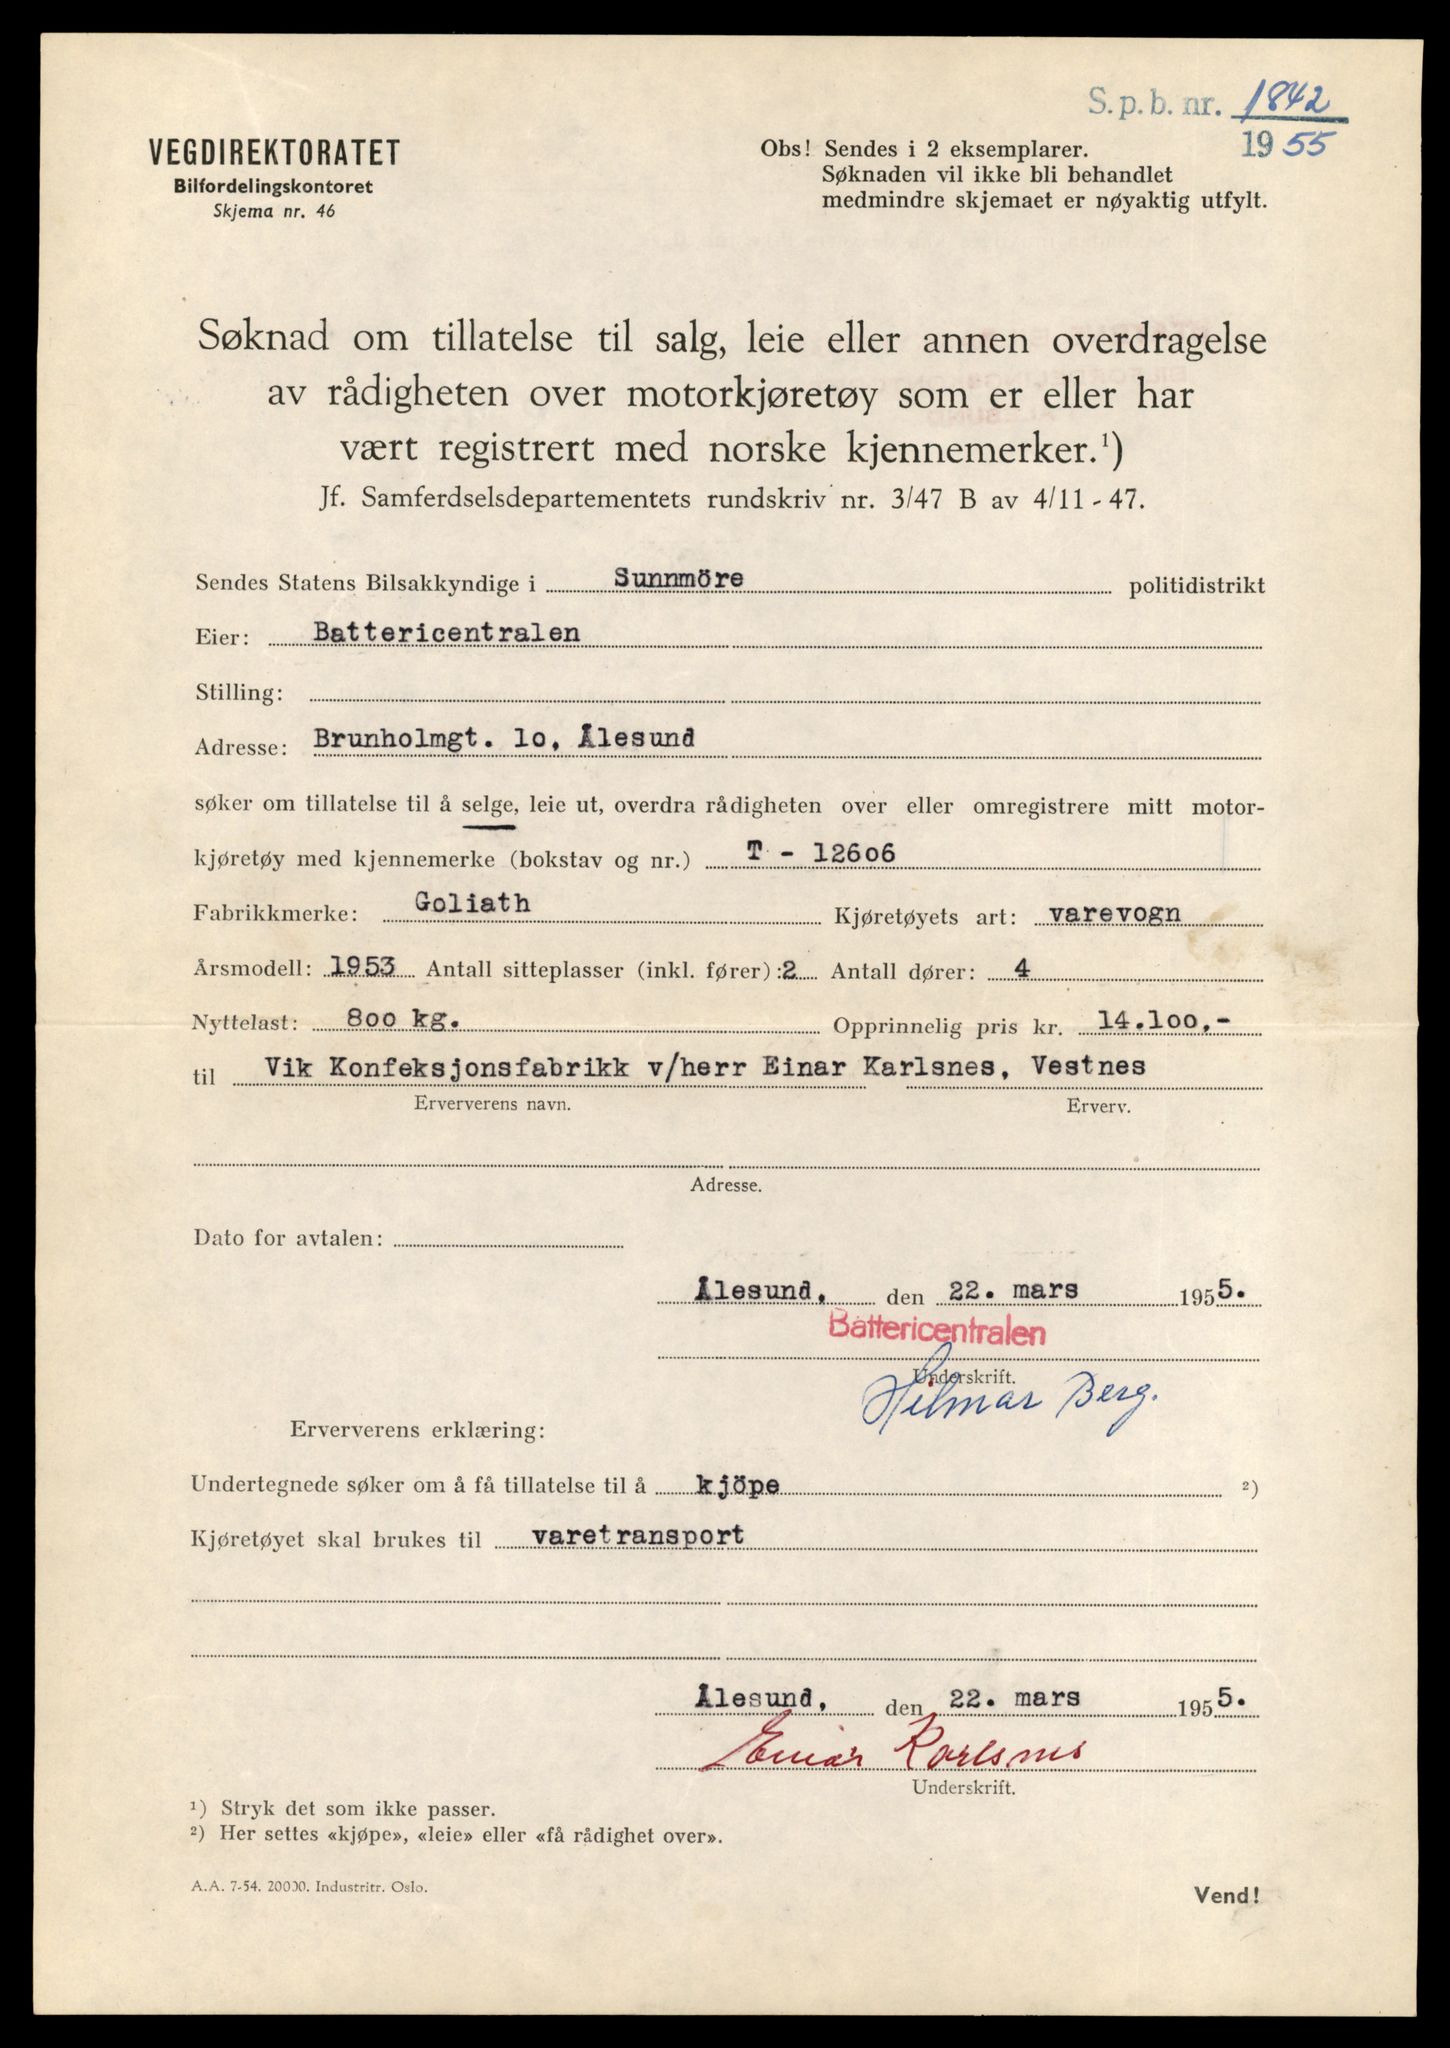 S.p.b. nr. 1842
1955
VEGDIREKTORATET
Bilfordelingskontoret
Skjema nr. 46
Obs! Sendes i 2 eksemplarer.
Søknaden vil ikke bli behandlet
medmindre skjemaet er nøyaktig utfylt.
Søknad om tillatelse til salg, leie eller annen overdragelse
av rådigheten over motorkjøretøy som er eller har
vært registrert med norske kjennemerker.¹)
Jf. Samferdselsdepartementets rundskriv nr. 3/47 B av 4/11 - 47.
Sendes Statens Bilsakkyndige i Sunnmöre politidistrikt
Eier: Battericentralen
Stilling:
Adresse: Brunholmgt. 1o, Ålesund
søker om tillatelse til å selge, leie ut, overdra rådigheten over eller omregistrere mitt motor-
kjøretøy med kjennemerke (bokstav og nr.) T - 126o6
Fabrikkmerke: Goliath Kjøretøyets art: varevogn
Årsmodell: 1953 Antall sitteplasser (inkl. fører): 2 Antall dører: 4
Nyttelast: 8oo kg. Opprinnelig pris kr. 14.1oo,-
til Vik Konfeksjonsfabrikk v/herr Einar Karlsnes, Vestnes
Erververens navn. Erverv.
Adresse.
Dato for avtalen:
Ålesund, den 22. mars 1955.
Battericentralen
Underskrift.
Hilmar Berg.
Erververens erklæring:
Undertegnede søker om å få tillatelse til å kjöpe ²)
Kjøretøyet skal brukes til varetransport
Ålesund, den 22. mars 1955.
Einar Karlsnes
Underskrift.
¹) Stryk det som ikke passer.
²) Her settes «kjøpe», «leie» eller «få rådighet over».
A.A. 7-54. 20000. Industritr. Oslo.
Vend!